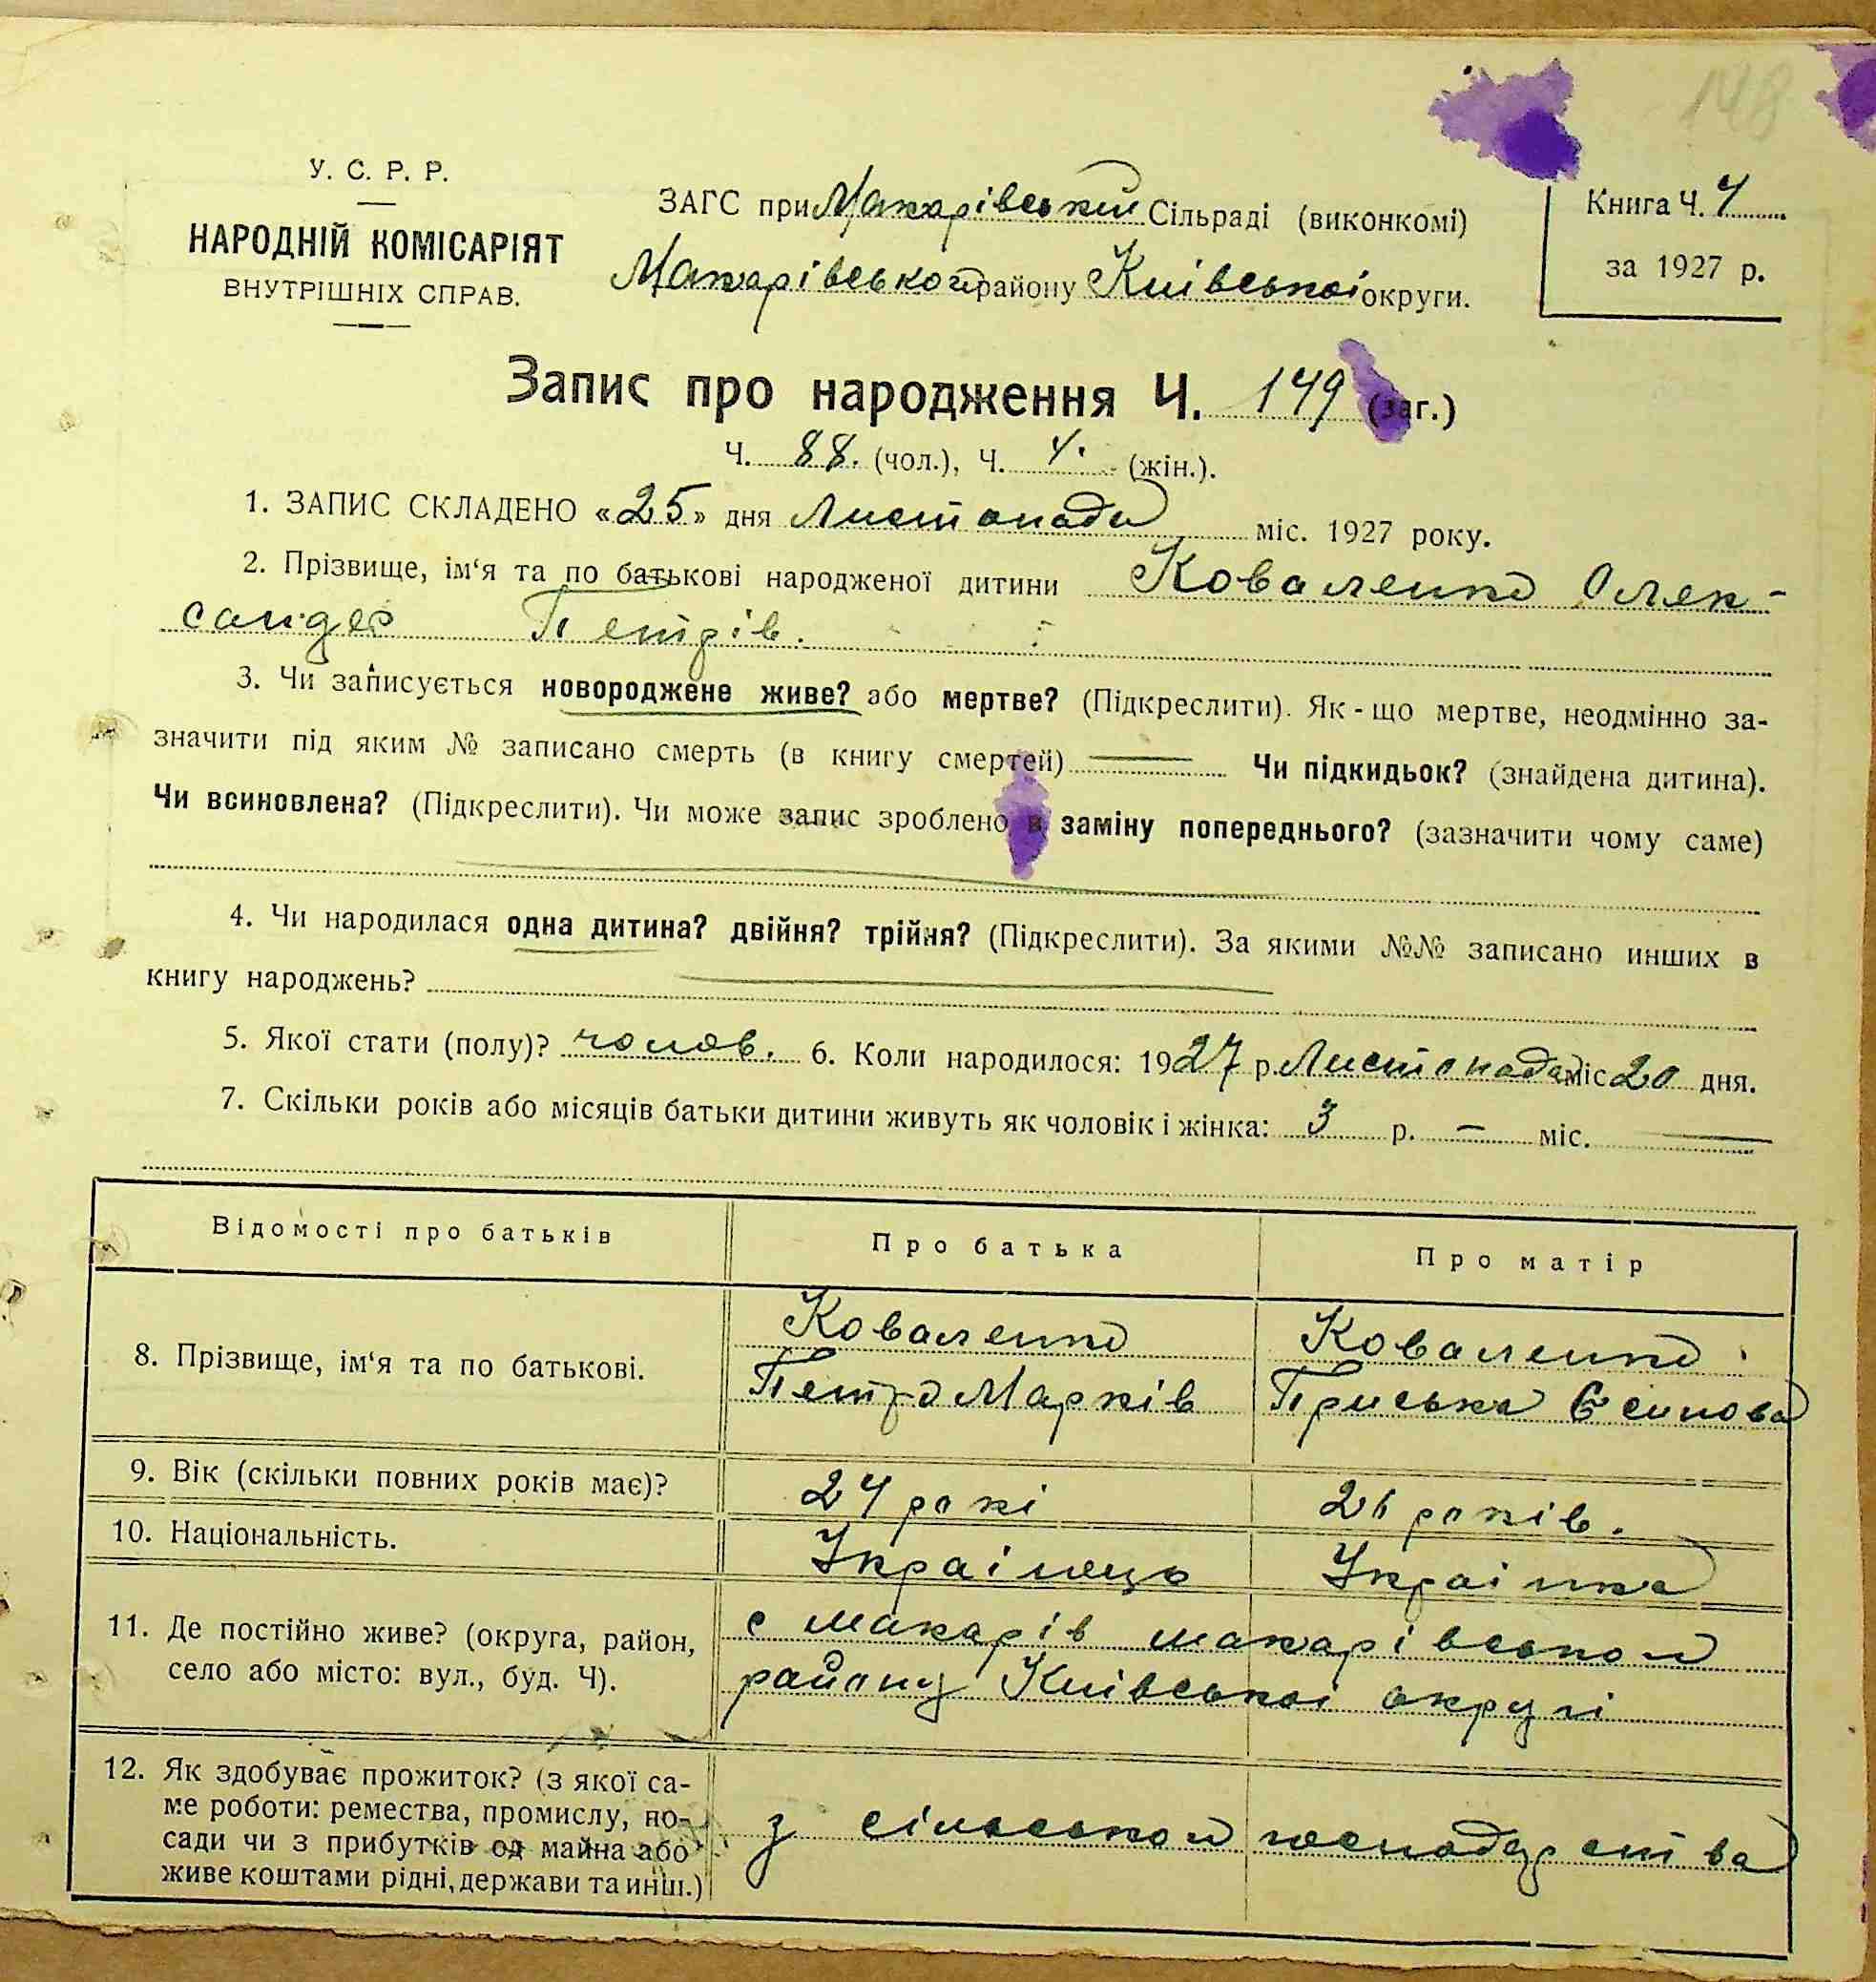 148
У. С. Р. Р.
НАРОДНІЙ КОМІСАРІЯТ
ВНУТРІШНІХ СПРАВ.
ЗАГС при Макарівській Сільраді (виконкомі)
Макарівського району Київської округи.
Книга Ч. 4
за 1927 р.
Запис про народження Ч. 149 (заг.)
Ч. 88. (чол.), Ч. (жін.).
1. ЗАПИС СКЛАДЕНО «25» дня Листопада міс. 1927 року.
2. Прізвище, ім‘я та по батькові народженої дитини Коваленко Олек-
сандер Петрів.
3. Чи записується новороджене живе? або мертве? (Підкреслити). Як-що мертве, неодмінно за-
значити під яким № записано смерть (в книгу смертей) Чи підкидьок? (знайдена дитина).
Чи всиновлена? (Підкреслити). Чи може запис зроблено в заміну попереднього? (зазначити чому саме)
4. Чи народилася одна дитина? двійня? трійня? (Підкреслити). За якими №№ записано инших в
книгу народжень?
5. Якої стати (полу)? чолов. 6. Коли народилося: 1927 р. Листопада міс 20 дня.
7. Скільки років або місяців батьки дитини живуть як чоловік і жінка: 3 р. — міс.
Відомості про батьків Про батька Про матір
8. Прізвище, ім‘я та по батькові.
Коваленко
Петро Марків
Коваленко
Приська Єсипова
9. Вік (скільки повних років має)? 24 рокі 26 років.
10. Національність. Украінець Украінка
11. Де постійно живе? (округа, район,
село або місто: вул., буд. Ч).
с макарів макарівського
району Київської округі
12. Як здобуває прожиток? (з якої са-
ме роботи: ремества, промислу, по-
сади чи з прибутків од майна або
живе коштами рідні, держави та инш.)
з сільського господарства